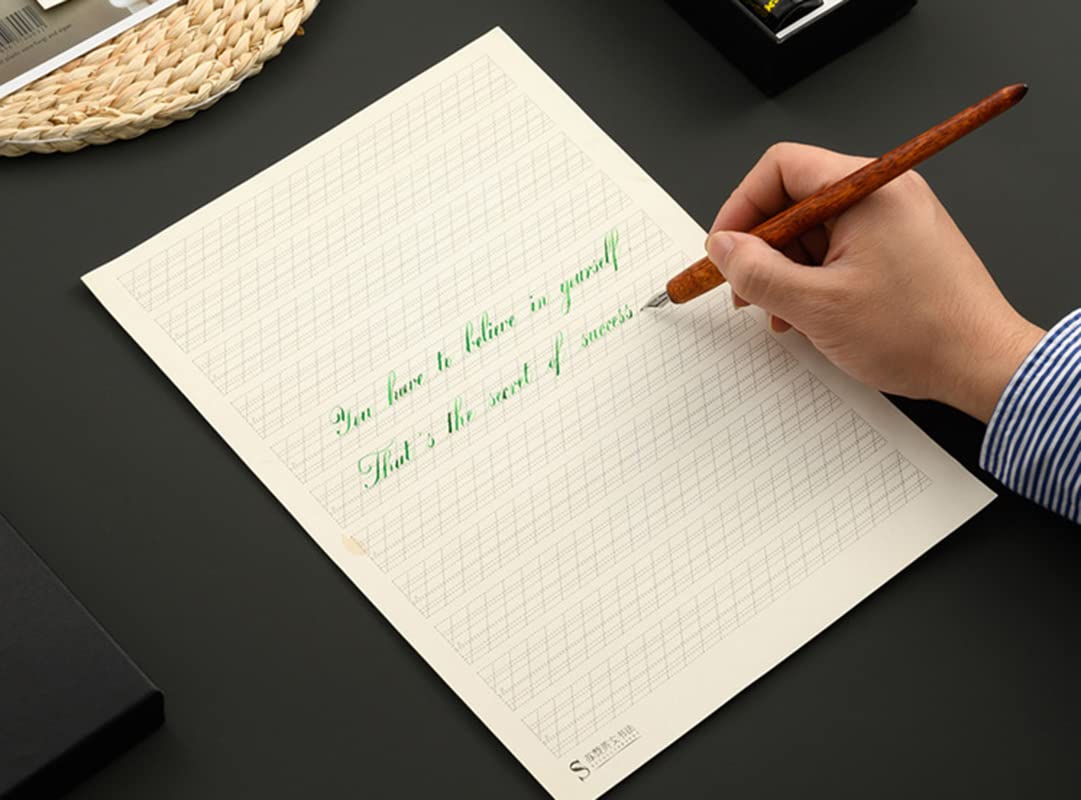 You have to believe in yourself.
That's the secret of success
S
英文书法